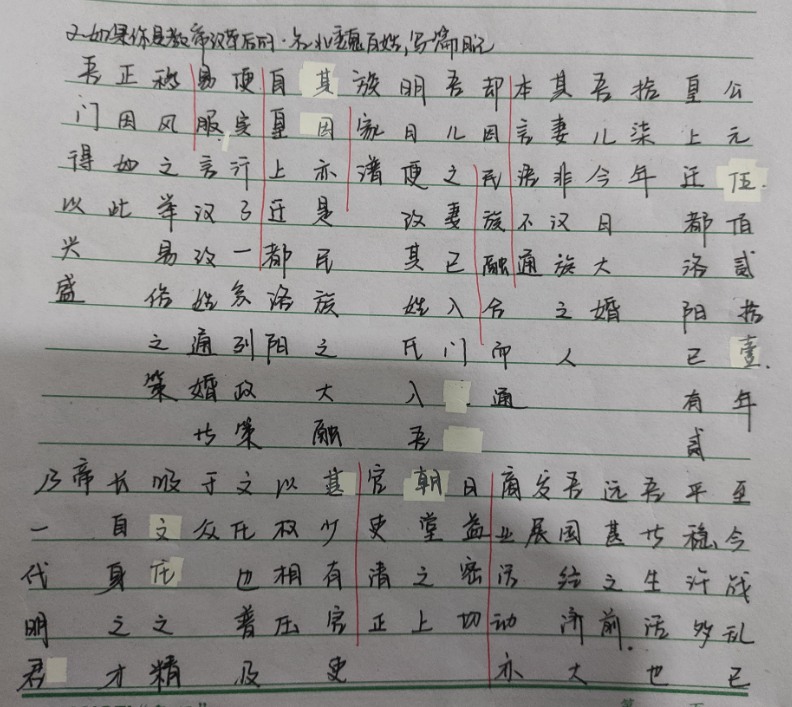 2.如果你是教帝改革后的·名北魏百姓,写篇日记
公元伍佰贰拾壹.年
皇上迁都洛阳已有贰
拾柒年
吾儿今日大婚
其妻非汉族之人
本言语不通
却因民族融合而通
吾儿之妻已入门
明日便改其姓氏入吾
族家谱
其因亦是民族之大融
自皇上迁都洛阳
便实行了一系列政策
易服言汉改姓通婚共
移风之举易俗之策
正因如此
吾门得以兴盛
至今战乱已
平稳,许够
吾共生活也
远甚之前.大
吾国经济
发展
商业活动亦
日益密切
朝堂之上
官吏清正
甚少有官吏
以权相压
文氏也普及
于众
吸文氏之精
长自身之才
帝
乃一代明君